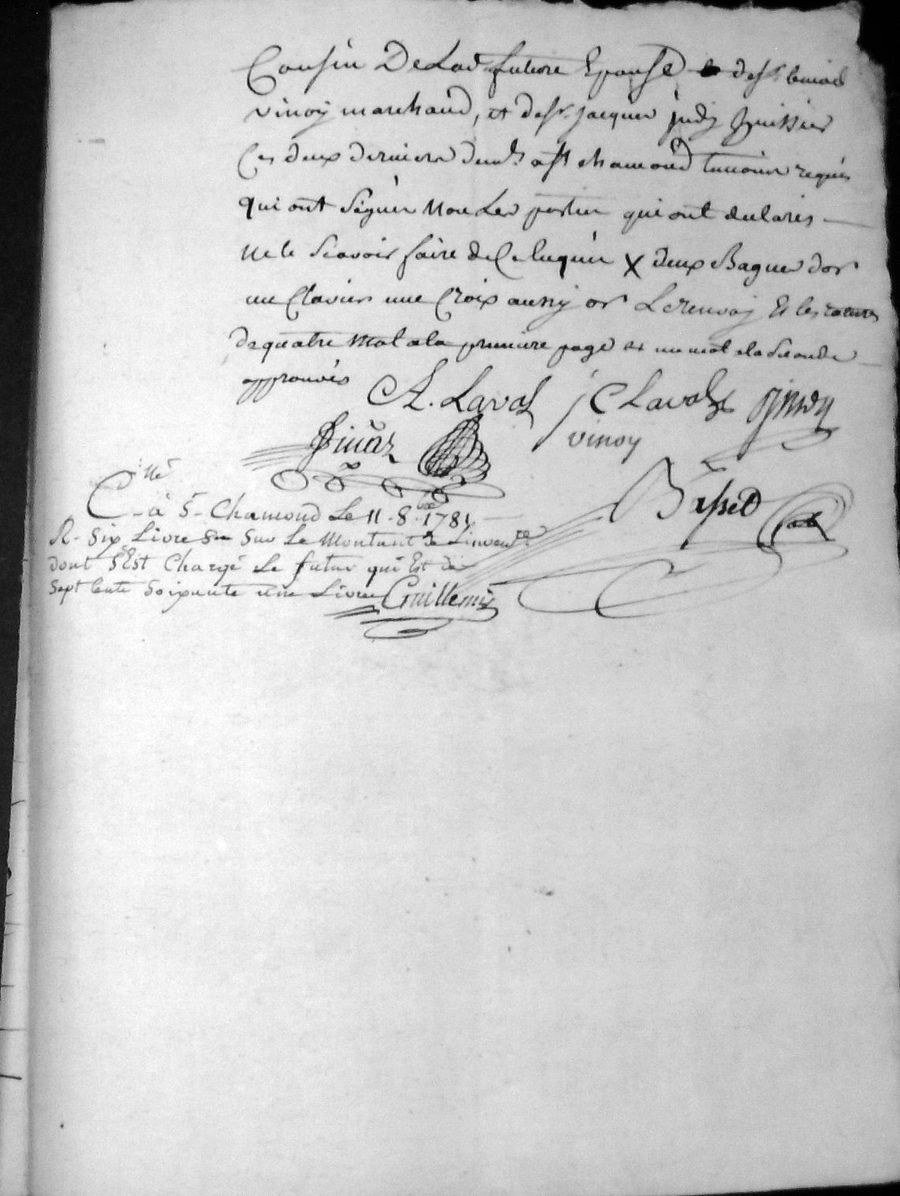 Cousin De Lad. future Epouse, de sr.
vinoy marchand, et de sr. jacques judy huissier
Ces deux derniers deurt. a st chamond temoins requis
qui ont signés non Les parties qui ont declarés
ne le sçavoir faire de Ce Enquis X deux Bagues d'or
une Clavier une Croix aussy or Le renvoy Et les ratures
de quatre mot a la premiere page et un mot a la seconde
approuvés
A. Laval j C Laval
vinoy
C.lle
- à St- Chamond Le 11 - 8.bre 1781
R- Six Livre Sur Le Montant de
dont s'Est Chargé Le futur qui Est de
Sept Cents Soixante une Livres Guillemin